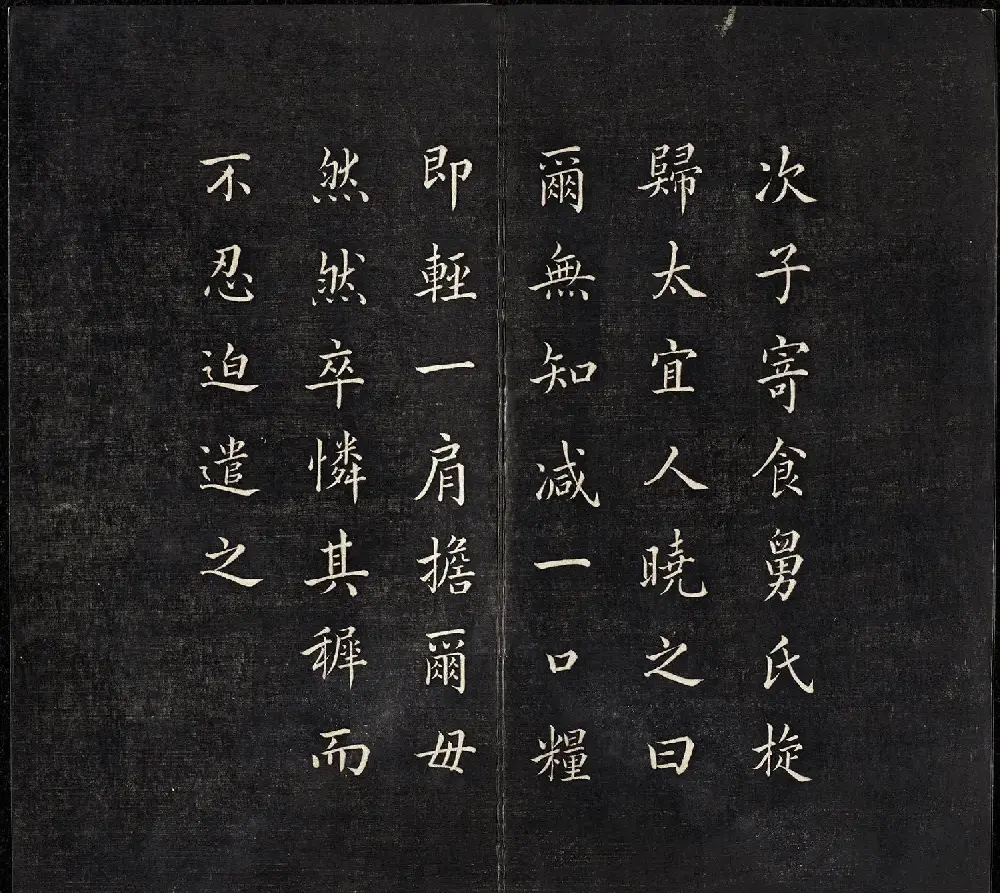 次子寄食舅氏旋
歸太宜人曉之曰
爾無知減一口糧
即輕一肩擔爾毋
然然卒憐其穉而
不忍迫遣之